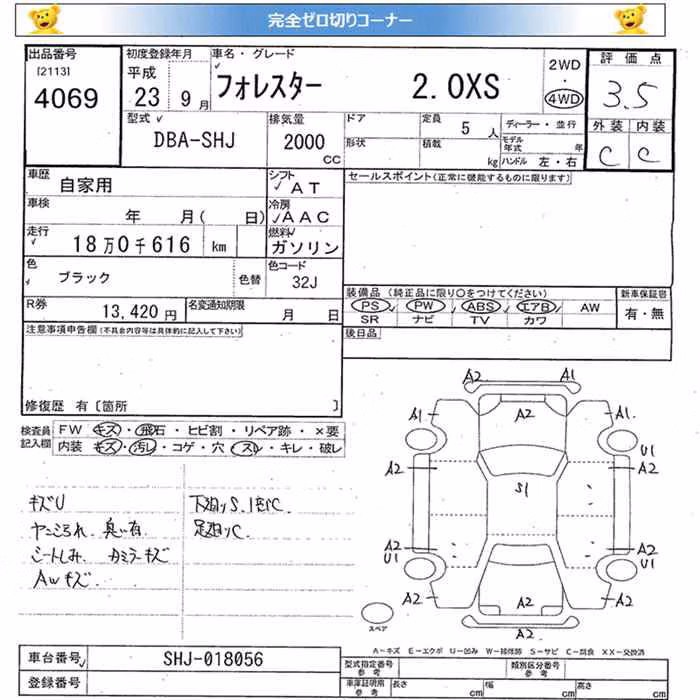 完全ゼロ切りコーナー
出品番号
[2113]
4069
初度登録年月
平成
23 9 月
車名・グレード
フォレスター 2.0XS
2WD
・
4WD
評価点
3.5
外装 内装
C C
型式
DBA-SHJ
排気量
2000
cc
ドア
定員 5 人
ディーラー・並行
形状
積載 kg
モデル年式 年
ハンドル 左・右
車歴
自家用
シフト
AT
車検
年 月( 日)
冷房
AAC
走行
18万0千616 km
燃料
ガソリン
色
ブラック
色替
色コード
32J
R券
13,420 円
名変通知期限
月 日
セールスポイント(正常に機能するものに限ります)
装備品 (純正品に限り○をつけてください)
PS PW ABS エアB AW
SR ナビ TV カワ
新車保証書
有・無
後日品
注意事項申告欄(不具合内容等は具体的に記入して下さい)
修復歴 有〔箇所 〕
検査員記入欄
FW キズ・飛石・ヒビ割・リペア跡・×要
内装 キズ・汚レ・コゲ・穴・スレ・キレ・破レ
キズU
ヤニよごれ. 臭い有
シートしみ. カミラーキズ
AWキズ.
下廻りS.1部C.
足廻りC.
A2 A1
A1 A2 A1
U1
A2 A2
S1
A2 A2
U1 U1
A2 A2 A2
A2
スペア
A−キズ E−エクボ U−凹み W−補修跡 S−サビ C−腐食 XX−交換済
車台番号 SHJ-018056
登録番号
型式指定番号
参考
類別区分番号
参考
車庫証明用
参考
長さ cm 幅 cm 高さ cm